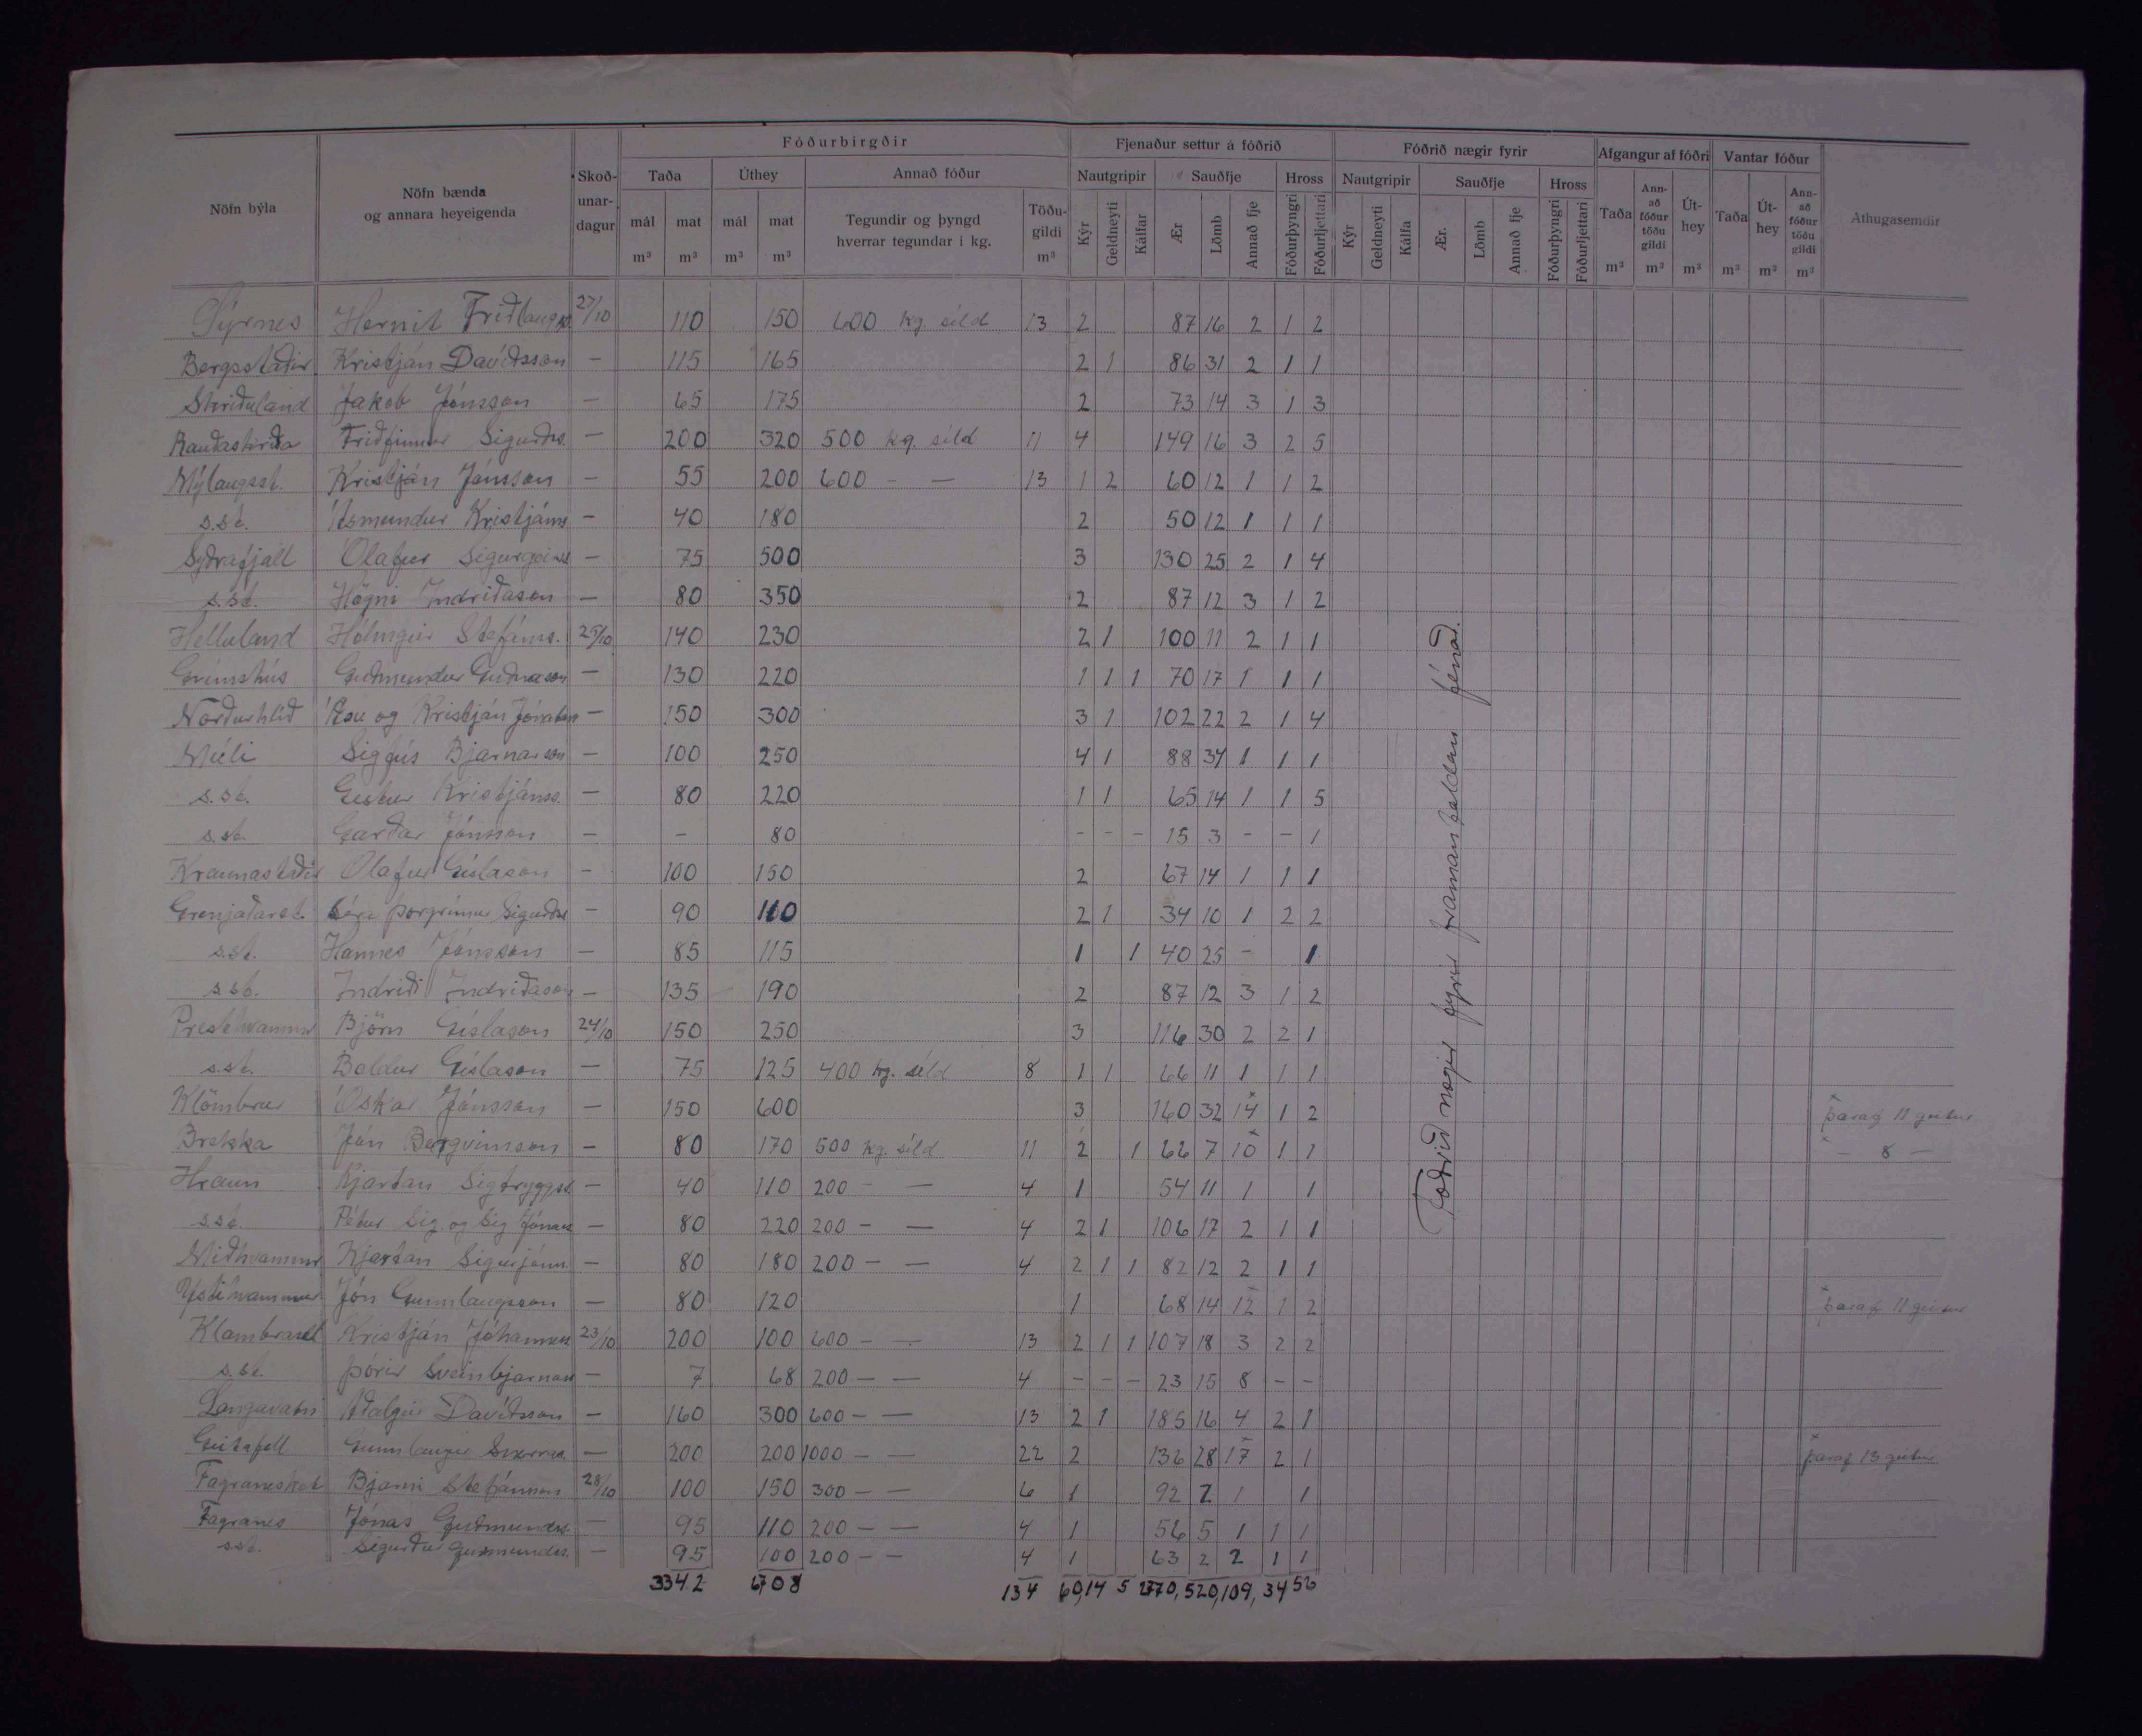 Nöfn býla | Nöfn bænda og annara heyeigenda | Skoð-unar-dagur | Fóðurbirgðir | Fjenaður settur á fóðrið | Fóðrið nægir fyrir | Afgangur af fóðri | Vantar fóður | Athugasemdir
Taða | Úthey | Annað fóður | Nautgripir | Sauðfje | Hross | Nautgripir | Sauðfje | Hross | Taða m³ | Ann-að fóður töðu gildi m³ | Út-hey m³ | Taða m³ | Út-hey m³ | Ann-að fóður töðu gildi m³
mál m³ | mat m³ | mál m³ | mat m³ | Tegundir og þyngd hverrar tegundar í kg. | Töðu-gildi m³ | Kýr | Geldneyti | Kálfar | Ær | Lömb | Annað fje | Fóðurþyngri | Fóðurljettari | Kýr | Geldneyti | Kálfa | Ær. | Lömb | Annað fje | Fóðurþyngri | Fóðurljettari
Hernit Friðlaugss. 27/10 110 150 600 kg. síld 13 2 87 16 2 1 2
Bergsstaðir Kristján Davíðsson — 115 165 2 1 86 31 2 1 1
Jakob Jónsson — 65 175 2 73 14 3 1 3
Friðfinnur Sigurðss. — 200 320 500 kg. síld 11 4 149 16 3 2 5
Mýlaugsst. Kristján Jónsson — 55 200 600 — — 13 1 2 60 12 1 1 2
s.st. Ásmundur Kristjánss — 40 180 2 50 12 1 1 1
Syðrafjall Ólafur Sigurgeirss — 75 500 3 130 25 2 1 4
s.st. Högni Indriðason — 80 350 2 87 12 3 1 2
Helluland Hólmgeir Stefánss. 25/10 140 230 2 1 100 11 2 1 1
Grímshús Guðmundur Guðnason — 130 220 1 1 1 70 17 1 1 1
Norðurhlíð og Kristján — 150 300 3 1 102 22 2 1 4
Múli Sigfús Bjarnarson — 100 250 4 1 88 34 1 1 1
s.st. Gestur Kristjánss. — 80 220 1 1 65 14 1 1 5
s.st. Garðar Jónsson — – 80 – – – 15 3 – – 1
Kraunastaðir Ólafur Gíslason — 100 150 2 67 14 1 1 1
Grenjaðarst. Séra Þorgrímur Sigurðss — 90 110 2 1 34 10 1 2 2
s.st. Hannes Jónsson — 85 115 1 1 40 25 – 1
s.st. Indriði Indriðason — 135 190 2 87 12 3 1 2
Presthvammur Björn Gíslason 24/10 150 250 3 116 30 2 2 1
s.st. Baldur Gíslason — 75 125 400 kg. síld 8 1 1 66 11 1 1 1
Klömbrur Óskar Jónsson — 150 600 3 160 32 14 × 1 2 × þaraf 11 geitur
Brekka Jón Bergvinsson — 80 170 500 kg. síld 11 2 1 66 7 10 × 1 1 × — 8 —
Hraun Kjartan Sigtryggss — 40 110 200 — — 4 1 54 11 1 1
s.st. Pétur Sig. og Sig Jónass — 80 220 200 — — 4 2 1 106 17 2 1 1
Miðhvammur Kjartan Sigurjónss — 80 180 200 — — 4 2 1 1 82 12 2 1 1
Ystihvammur Jón Gunnlaugsson — 80 120 1 68 14 12 × 1 2 × þaraf 11 geitur
Klambrasel Kristján Jóhanness 23/10 200 100 600 — — 13 2 1 1 107 18 3 2 2
s.st. Þórir Sveinbjarnars — 7 68 200 — — 4 – – – 23 15 8 – –
Langavatn Aðalgeir Davíðsson — 160 300 600 — — 13 2 1 185 16 4 2 1
Geitafell Gunnlaugur Snorras. — 200 200 1000 — — 22 2 136 28 17 × 2 1 × þaraf 13 geitur
Fagraneskot Bjarni Stefánsson 28/10 100 150 300 — — 6 1 92 7 1 1
Fagranes Jónas Guðmundss. — 95 110 200 — — 4 1 56 5 1 1 1
s.st. Sigurður Guðmundss. — 95 100 200 — — 4 1 63 2 2 1 1
3342 6708 134 60, 14 5 2770, 520, 109, 34 56
Fóðrið nægir fyrir framantaldan fénað.